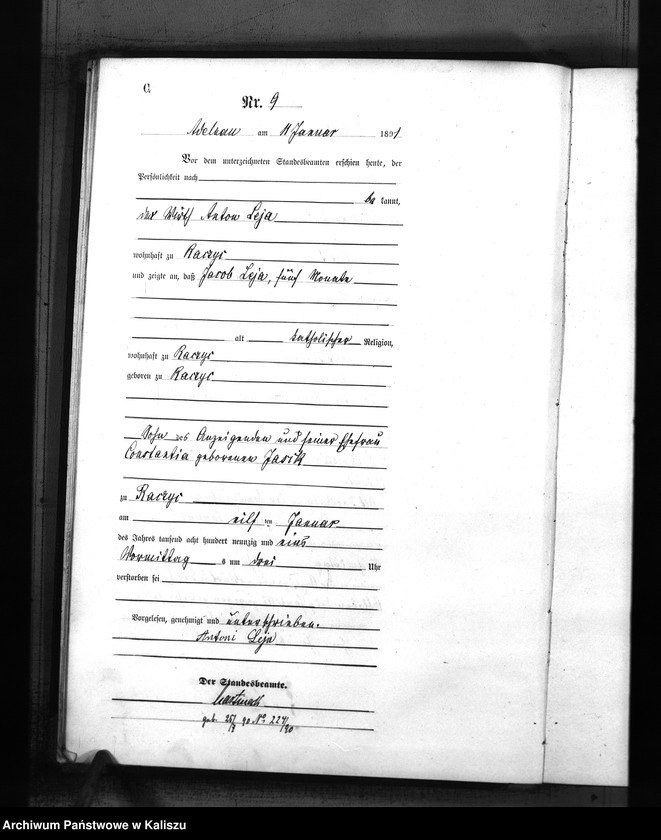 C.
Nr. 9
Adelnau am 11 Januar 1891
Vor dem unterzeichneten Standesbeamten erschien heute, der
Persönlichkeit nach
be kannt,
der Wirth Anton Leja
wohnhaft zu Raczyc
und zeigte an, daß Jacob Leja, fünf Monate
alt katholischer Religion,
wohnhaft zu Raczyc
geboren zu Raczyc
Sohn des Anzeigenden und seiner Ehefrau
Constantia geborenen Jasik
zu Raczyc
am eilf ten Januar
des Jahres tausend acht hundert neunzig und eins
Vormittag s um drei Uhr
verstorben sei
Vorgelesen, genehmigt und unterschrieben.
Antoni Leja
Der Standesbeamte.
geb. 25/7 90 No 224/90
Archiwum Państwowe w Kaliszu